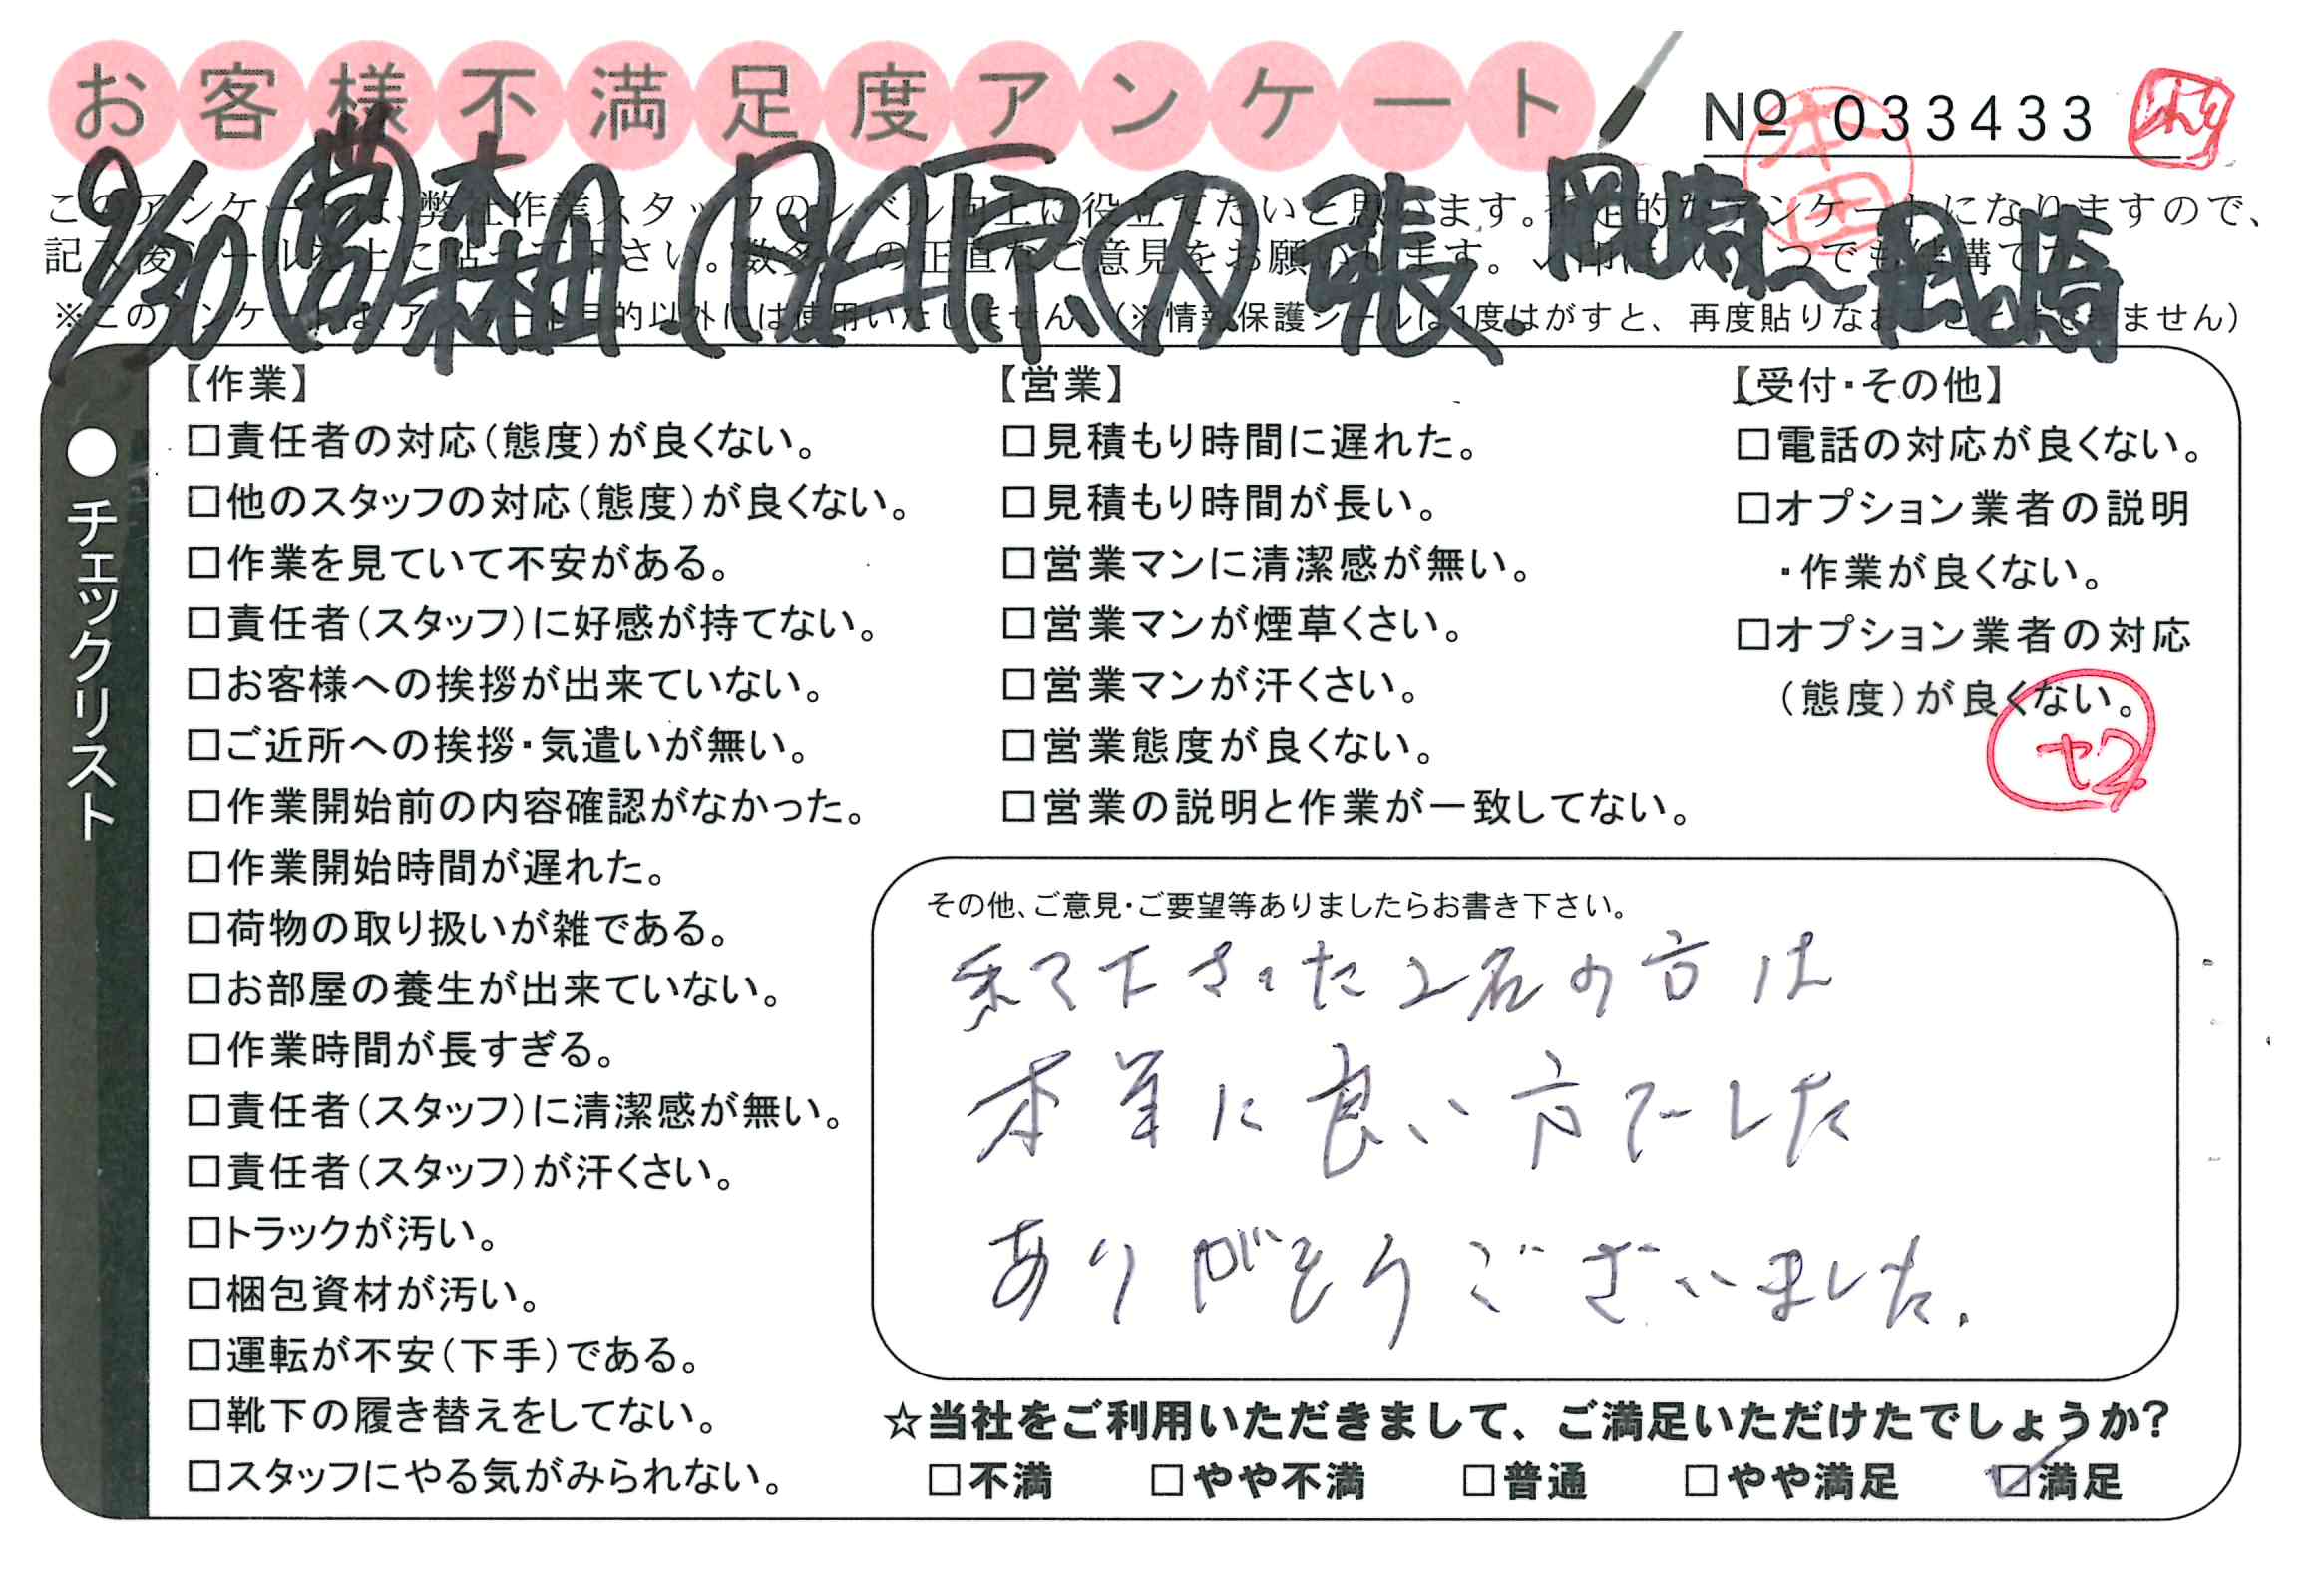 お客様不満足度アンケート
No 033433
本田
9/30 営 森田
張
岡崎〜岡崎
※このアンケートは、アンケート目的以外には使用いたしません。(※情報保護シールは1度はがすと、再度貼りなおすことはできません)
●チェックリスト
【作業】
□責任者の対応(態度)が良くない。
□他のスタッフの対応(態度)が良くない。
□作業を見ていて不安がある。
□責任者(スタッフ)に好感が持てない。
□お客様への挨拶が出来ていない。
□ご近所への挨拶・気遣いが無い。
□作業開始前の内容確認がなかった。
□作業開始時間が遅れた。
□荷物の取り扱いが雑である。
□お部屋の養生が出来ていない。
□作業時間が長すぎる。
□責任者(スタッフ)に清潔感が無い。
□責任者(スタッフ)が汗くさい。
□トラックが汚い。
□梱包資材が汚い。
□運転が不安(下手)である。
□靴下の履き替えをしてない。
□スタッフにやる気がみられない。
【営業】
□見積もり時間に遅れた。
□見積もり時間が長い。
□営業マンに清潔感が無い。
□営業マンが煙草くさい。
□営業マンが汗くさい。
□営業態度が良くない。
□営業の説明と作業が一致してない。
【受付・その他】
□電話の対応が良くない。
□オプション業者の説明
・作業が良くない。
□オプション業者の対応
(態度)が良くない。
その他、ご意見・ご要望等ありましたらお書き下さい。
来て下さった2名の方は
本当に良い方でした
ありがとうございました.
☆当社をご利用いただきまして、ご満足いただけたでしょうか?
□不満 □やや不満 □普通 □やや満足 ☑満足